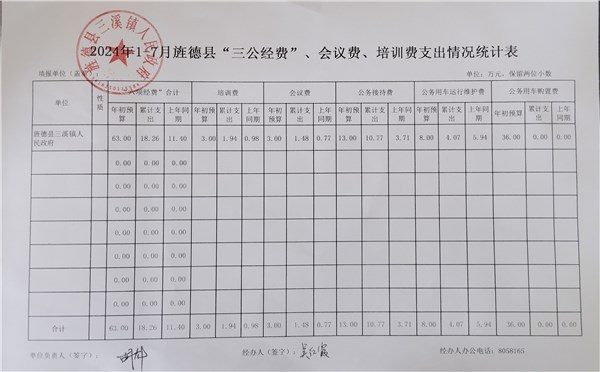 2024年1-7月旌德县“三公经费”、会议费、培训费支出情况统计表
旌德县三溪镇人民政府
填报单位（盖章） 单位：万元，保留两位小数
单位 性质 “三公经费”合计 培训费 会议费 公务接待费 公务用车运行维护费 公务用车购置费
年初预算 累计支出 上年同期 年初预算 累计支出 上年同期 年初预算 累计支出 上年同期 年初预算 累计支出 上年同期 年初预算 累计支出 上年同期 年初预算 累计支出 上年同期
旌德县三溪镇人民政府 63.00 18.26 11.40 3.00 1.94 0.98 3.00 1.48 0.77 13.00 10.77 3.71 8.00 4.07 5.94 36.00 0.00 0.00
0.00 0.00
0.00 0.00
0.00 0.00
0.00 0.00
0.00 0.00
0.00 0.00
0.00 0.00
合计 63.00 18.26 11.40 3.00 1.94 0.98 3.00 1.48 0.77 13.00 10.77 3.71 8.00 4.07 5.94 36.00 0.00 0.00
单位负责人（签字）： 经办人（签字）： 经办人办公电话：8058165